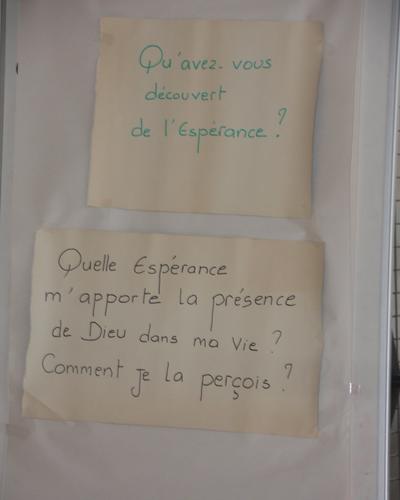 Qu'avez-vous
découvert
de l'Espérance ?
Quelle Espérance
m'apporte la présence
de Dieu dans ma Vie ?
Comment je la perçois ?